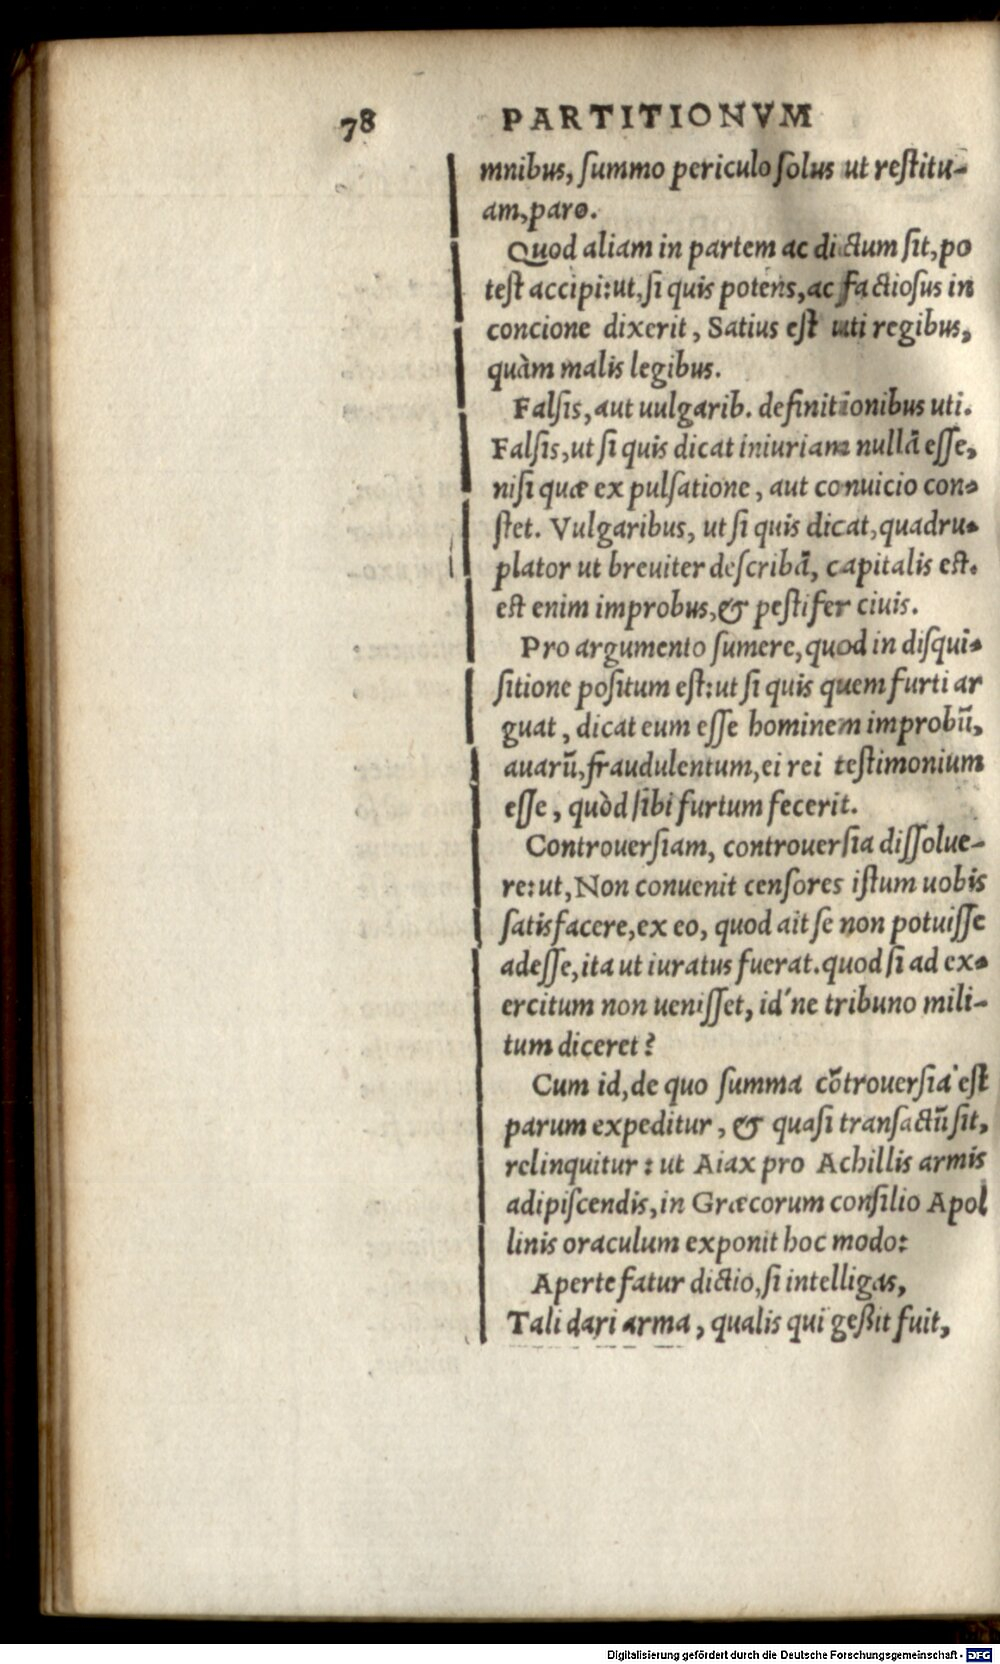 78 PARTITIONVM
mnibus, ſummo periculo ſolus ut reſtitu-
am, paro.
Quod aliam in partem ac dictum ſit, po
teſt accipi: ut, ſi quis potens, ac factioſus in
concione dixerit, Satius eſt uti regibus,
quàm malis legibus.
Falſis, aut uulgarib. definitionibus uti.
Falſis, ut ſi quis dicat iniuriam nullã eſſe,
niſi quæ ex pulſatione, aut conuicio con-
ſtet. Vulgaribus, ut ſi quis dicat, quadru-
plator ut breuiter deſcribã, capitalis eſt.
eſt enim improbus, & peſtifer ciuis.
Pro argumento ſumere, quod in diſqui-
ſitione poſitum eſt: ut ſi quis quem furti ar
guat, dicat eum eſſe hominem improbũ,
auarũ, fraudulentum, ei rei teſtimonium
eſſe, quòd ſibi furtum fecerit.
Controuerſiam, controuerſia diſſolue-
re: ut, Non conuenit cenſores iſtum uobis
ſatisfacere, ex eo, quod ait ſe non potuiſſe
adeſſe, ita ut iuratus fuerat. quod ſi ad ex-
ercitum non ueniſſet, id'ne tribuno mili-
tum diceret?
Cum id, de quo ſumma cõtrouerſia eſt
parum expeditur, & quaſi transactũ ſit,
relinquitur: ut Aiax pro Achillis armis
adipiſcendis, in Græcorum conſilio Apol
linis oraculum exponit hoc modo:
Aperte fatur dictio, ſi intelligas,
Tali dari arma, qualis qui geßit fuit,
Digitalisierung gefördert durch die Deutsche Forschungsgemeinschaft - DFG